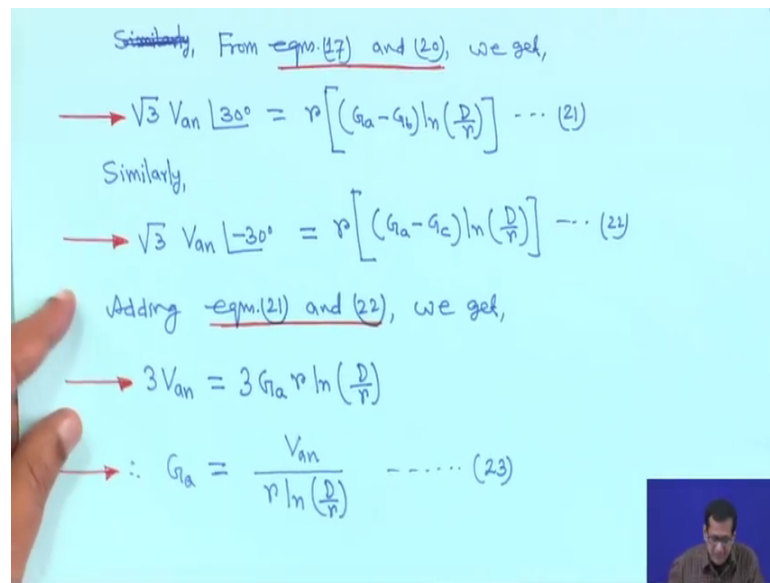 Similarly, From eqns.(17) and (20), we get,
√3 Van ∠30° = r[(Ga-Gb)ln(D/r)] --- (21)
Similarly,
√3 Van ∠-30° = r[(Ga-Gc)ln(D/r)] --- (22)
Adding eqns.(21) and (22), we get,
3Van = 3Ga r ln(D/r)
∴ Ga = Van / r ln(D/r) ------ (23)